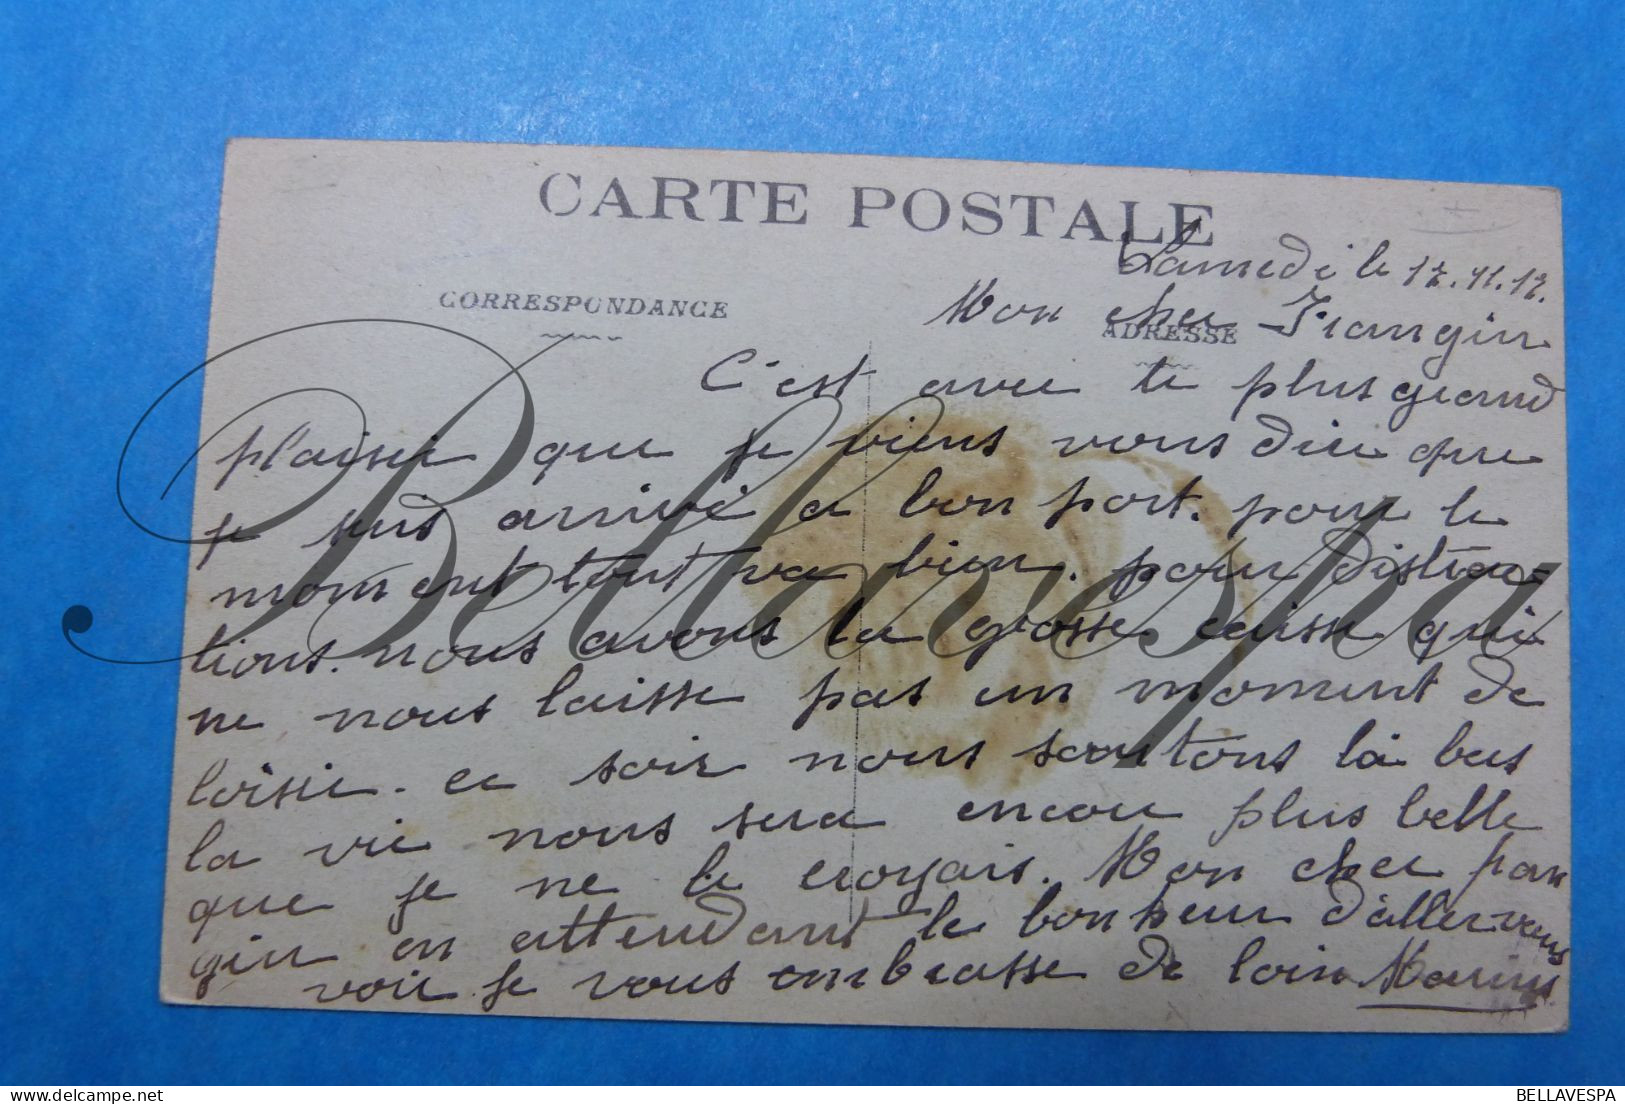 CARTE POSTALE
Samedi le 17.11.17.
CORRESPONDANCE
ADRESSE
Mon cher Frangin
C'est avec le plus grand
plaisir que je viens vous dire que
je suis arrivé a bon port. pour le
moment tout va bien. pour distrac=
tions. nous avons la grosse caisse qui
ne nous laisse pas un moment de
loisir. ce soir nous sautons là bas
la vie nous sera encore plus belle
que je ne le croyais. Mon cher fran
gin en attendant le bonheur d'aller vous
voir je vous embrasse de loin Marius
Bellavespa
BELLAVESPA